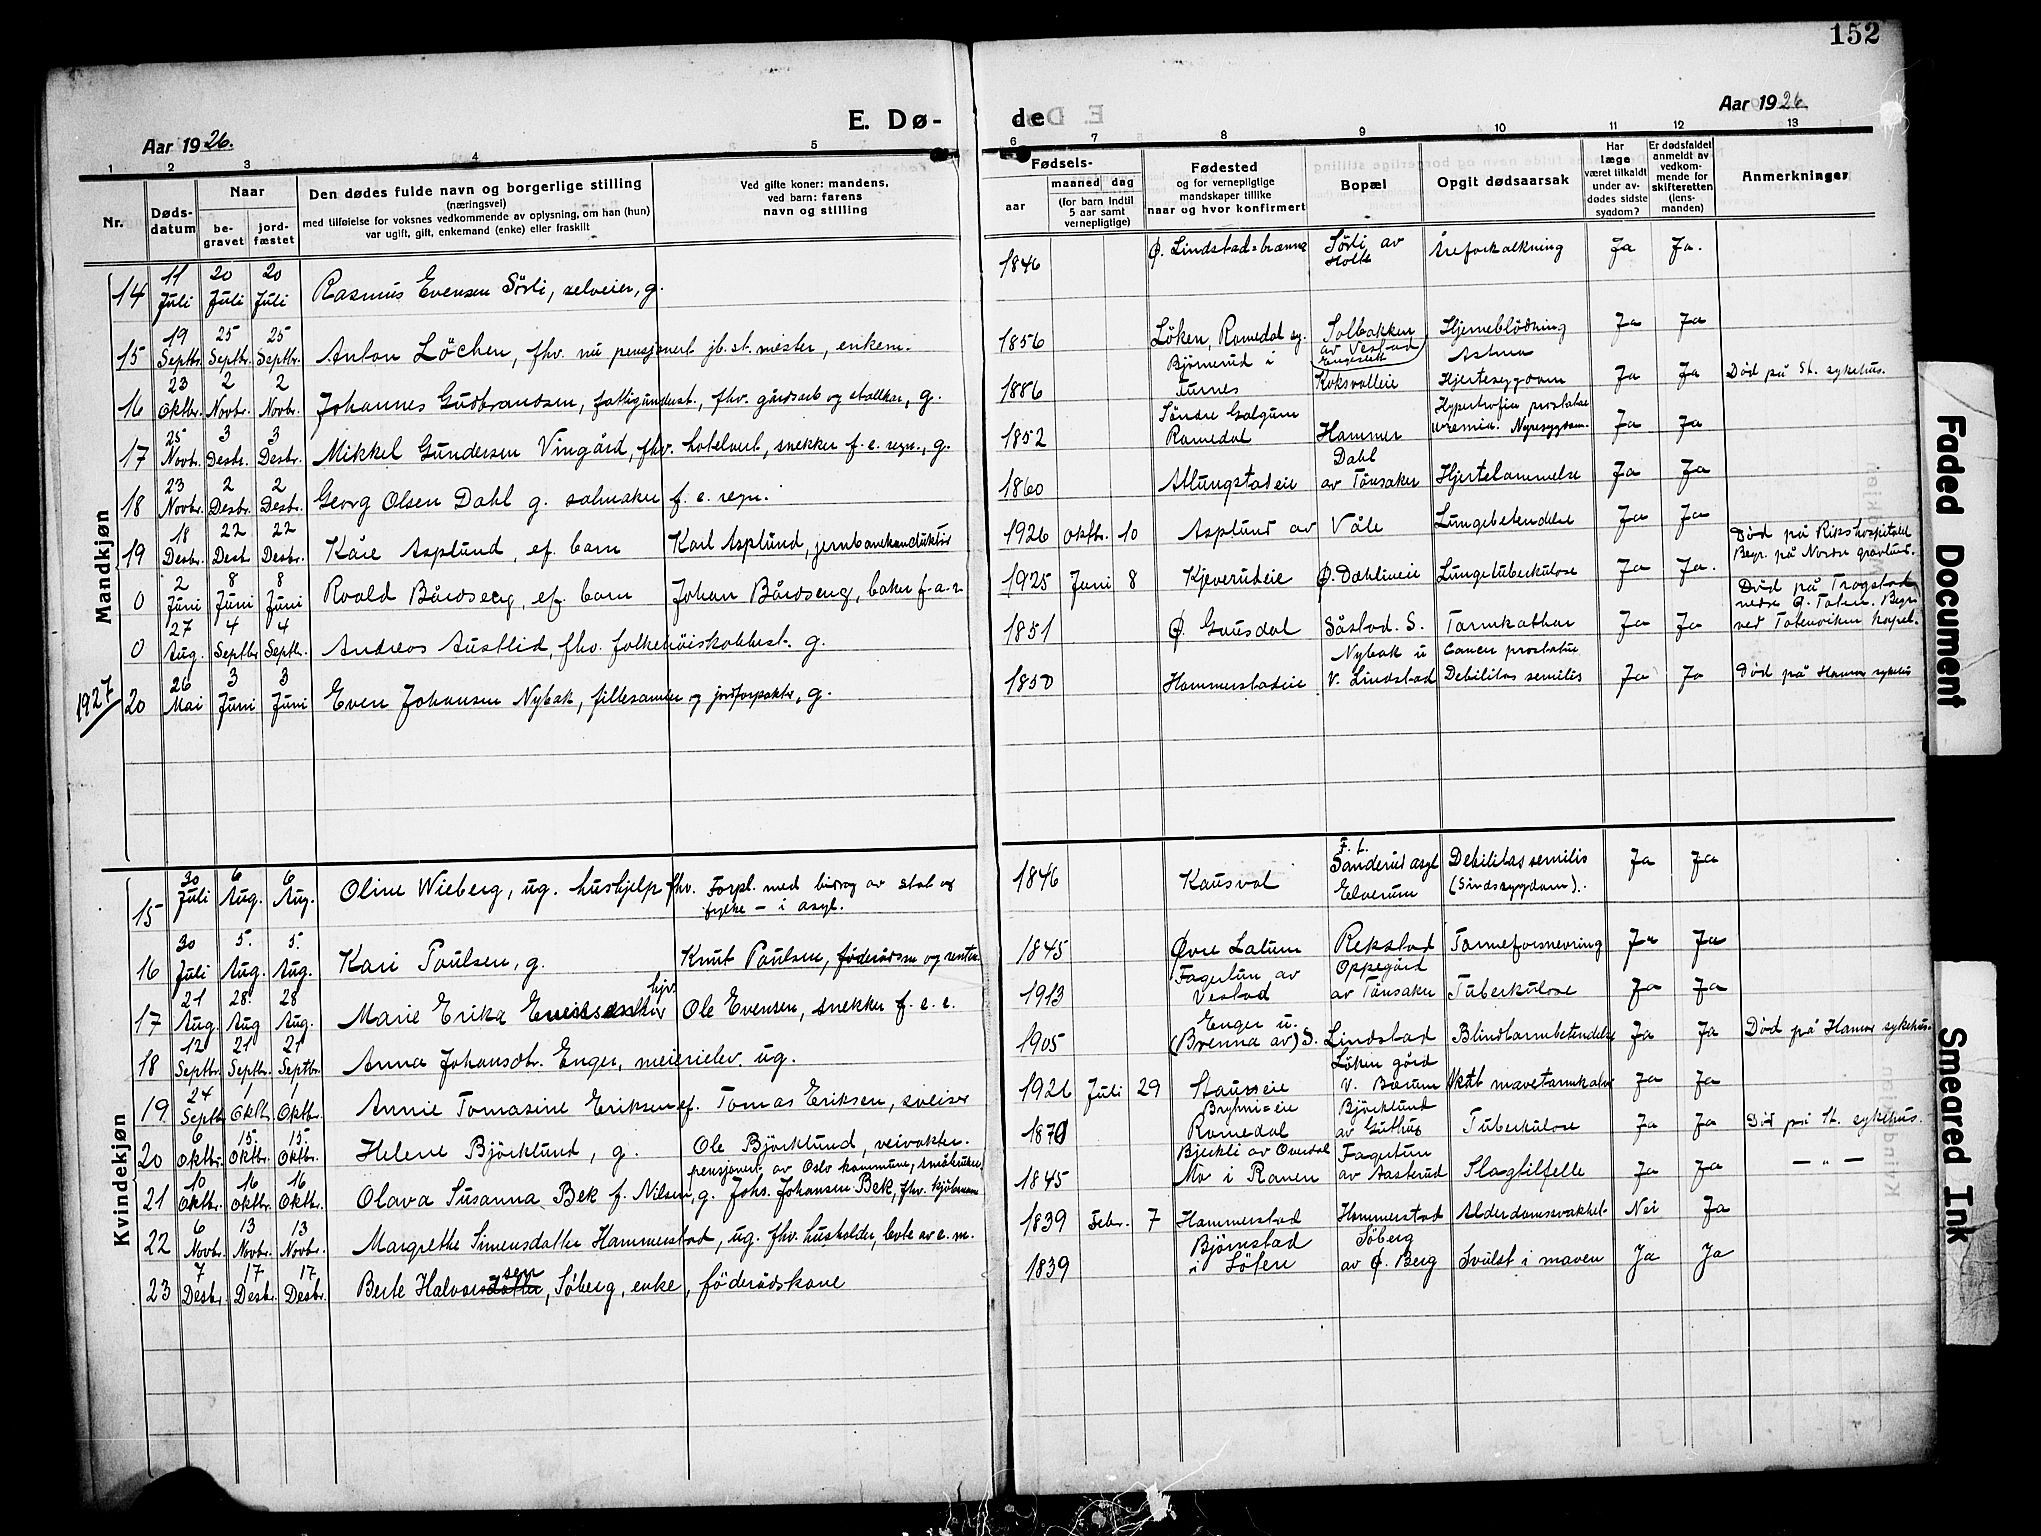 152
E. Dø-
de
Aar 1926.
Aar 1926
1 2 3 4 5
6 7 8 9 10 11 12 13
Nr.
Døds-
datum
Naar
be-
gravet
jord-
fæstet
Den dødes fulde navn og borgerlige stilling
(næringsvei)
med tilføielse for voksnes vedkommende av oplysning, om han (hun)
var ugift, gift, enkemand (enke) eller fraskilt
Ved gifte koner: mandens,
ved barn: farens
navn og stilling
Fødsels-
aar
maaned
dag
(for barn indtil
5 aar samt
vernepligtige)
Fødested
og for vernepligtige
mandskaper tillike
naar og hvor konfirmert
Bopæl
Opgit dødsaarsak
Har
læge
været tilkaldt
under av-
dødes sidste
sygdom?
Er dødsfaldet
anmeldt av
vedkom-
mende for
skifteretten
(lens-
manden)
Anmerkninger
Mandkjøn
14 11 Juli 20 Juli 20 Juli Rasmus Evensen Sörli, selveier, g. 1846 Ø. Lindstad=brænna Sörli av Holte Åreforkalkning Ja Ja.
15 19 Septbr. 25 Septbr. 25 Septbr. Anton Löchen, fhv. nu pensjonert jb.st.mester, enkem. 1856 Löken, Romedal sg. Solbakken av Vestad Hjerneblödning Ja Ja
16 23 Oktbr. 2 Novbr. 2 Novbr. Johannes Gudbrandsen, fattigunderst., fhv. gårdsarb og stallkar, g. 1886 Björnerud i Furnes Koksvolleie Astma Hjertesygdom Ja Ja Död på St. sykehus.
17 25 Novbr. 3 Desbr. 3 Desbr. Mikkel Gundersen Vingård, fhv. hotelvert, snekker f. e. regn., g. 1852 Söndre Galgum Romedal Hammer Hypertrofia prostatae uremia. Nyresygdom. Ja Ja
18 23 Novbr. 2 Desbr. 2 Desbr. Georg Olsen Dahl g. salmaker f. e. regn. 1860 Atlungstadeie Dahl av Tönsaker Hjertelammelse Ja Ja
19 18 Desbr. 22 Desbr. 22 Desbr. Kåre Asplund, ef. barn Karl Asplund, jernbanekonduktör 1926 Oktbr. 10 Asplund av Våle Lungebetendelse Ja Ja Död på Rikshospitalet Begr. på Nordre gravlund.
0 2 Juni 8 Juni 8 Juni Roald Bårdseng, ef. barn Johan Bårdseng, baker f. a. r. 1925 Juni 8 Kjeverudeie Ø. Dæhlieeie Lungetuberkulose Ja Ja.
0 27 Aug. 4 Septbr 4 Septbr. Andreas Austlid, fhv. folkehöiskolebest. g. 1851 Ø. Gausdal Såstad. S. Tarmkathar Ja Ja Död på Trogstad nedre Ö. Toten. Begr. ved Totenviken kapel.
1927
20 26 Mai 3 Juni 3 Juni Even Johansen Nybak, fillesamler og jordforpakter, g. 1850 Hammerstadeie Nybak u V. Lindstad Cancer prostatae Debilitas senilis Ja Ja Död på Hamar sykehus
Kvindekjøn
15 30 Juli 6 Aug. 6 Aug. Oline Wieberg, ug. hushjelp fhv. Forpl. med bidrag av stat og fylke - i asyl. 1846 Kausvol F. t. Sanderud asyl Elverum Debilitas senilis (Sindssygdom). Ja Ja
16 30 Juli 5. Aug. 5. Aug. Kari Paulsen, g. Knut Paulsen, föderådsm og rentier 1845 Øvre Latum Rekstad Tarmeforsnevring Ja Ja
17 21 Aug. 28. Aug 28 Aug. Marie Erika Evensen Ole Evensen, snekker f. e. e. 1913 Fagertun av Vestad Oppegård av Tönsaker Tuberkulose Ja Ja
18 12 Septbr. 21 Septbr. 21 Septbr. Anna Johansdtr. Enger, meierielev ug. 1905 Enger u. (Brenna av) S. Lindstad Blindtarmbetendelse Ja Ja Död på Hamar sykehus.
19 24 Septbr 1 Oktbr 1 Oktbr. Annie Tomasine Eriksen ef. Tomas Eriksen, sveiser 1926 Juli 29 Stausseie Löken gård V. Bærum Akut mavetarmkatar Ja Ja
20 6 Oktbr. 15. Oktbr. 15. Oktbr. Helene Björklund, g. Ole Björklund, veivokter. 1870 Bryhni=eie Romedal Björklund av Guthus Tuberkulose Ja Ja Död på St. sykehus.
21 10 Oktbr. 16 Oktbr. 16 Oktbr. Olava Susanna Bek f. Nilsen, g. pensjonert av Oslo kommune, småbruker Johs. Johansen Bek, fhv. kjöbmann 1845 Bjerkli av Overdal Mo i Ranen Fagertun av Aasterud Slagtilfelle Ja Ja - " -
22 6 Novbr. 13 Novbr. 13 Novbr. Margrethe Simensdatter Hammerstad, ug. fhv. husholder, levde av e. m. 1839 Febr. 7 Hammerstad Hammerstad Alderdomssvakhet Nei Ja
23 7 Desbr. 17 Desbr. 17 Desbr. Berte Halvorsdatter sen, Söberg, enke, föderådskone 1839 Bjørnstad i Löten Söberg av Ø. Berg Svulst i maven Ja Ja
Faded Document
Smeared Ink